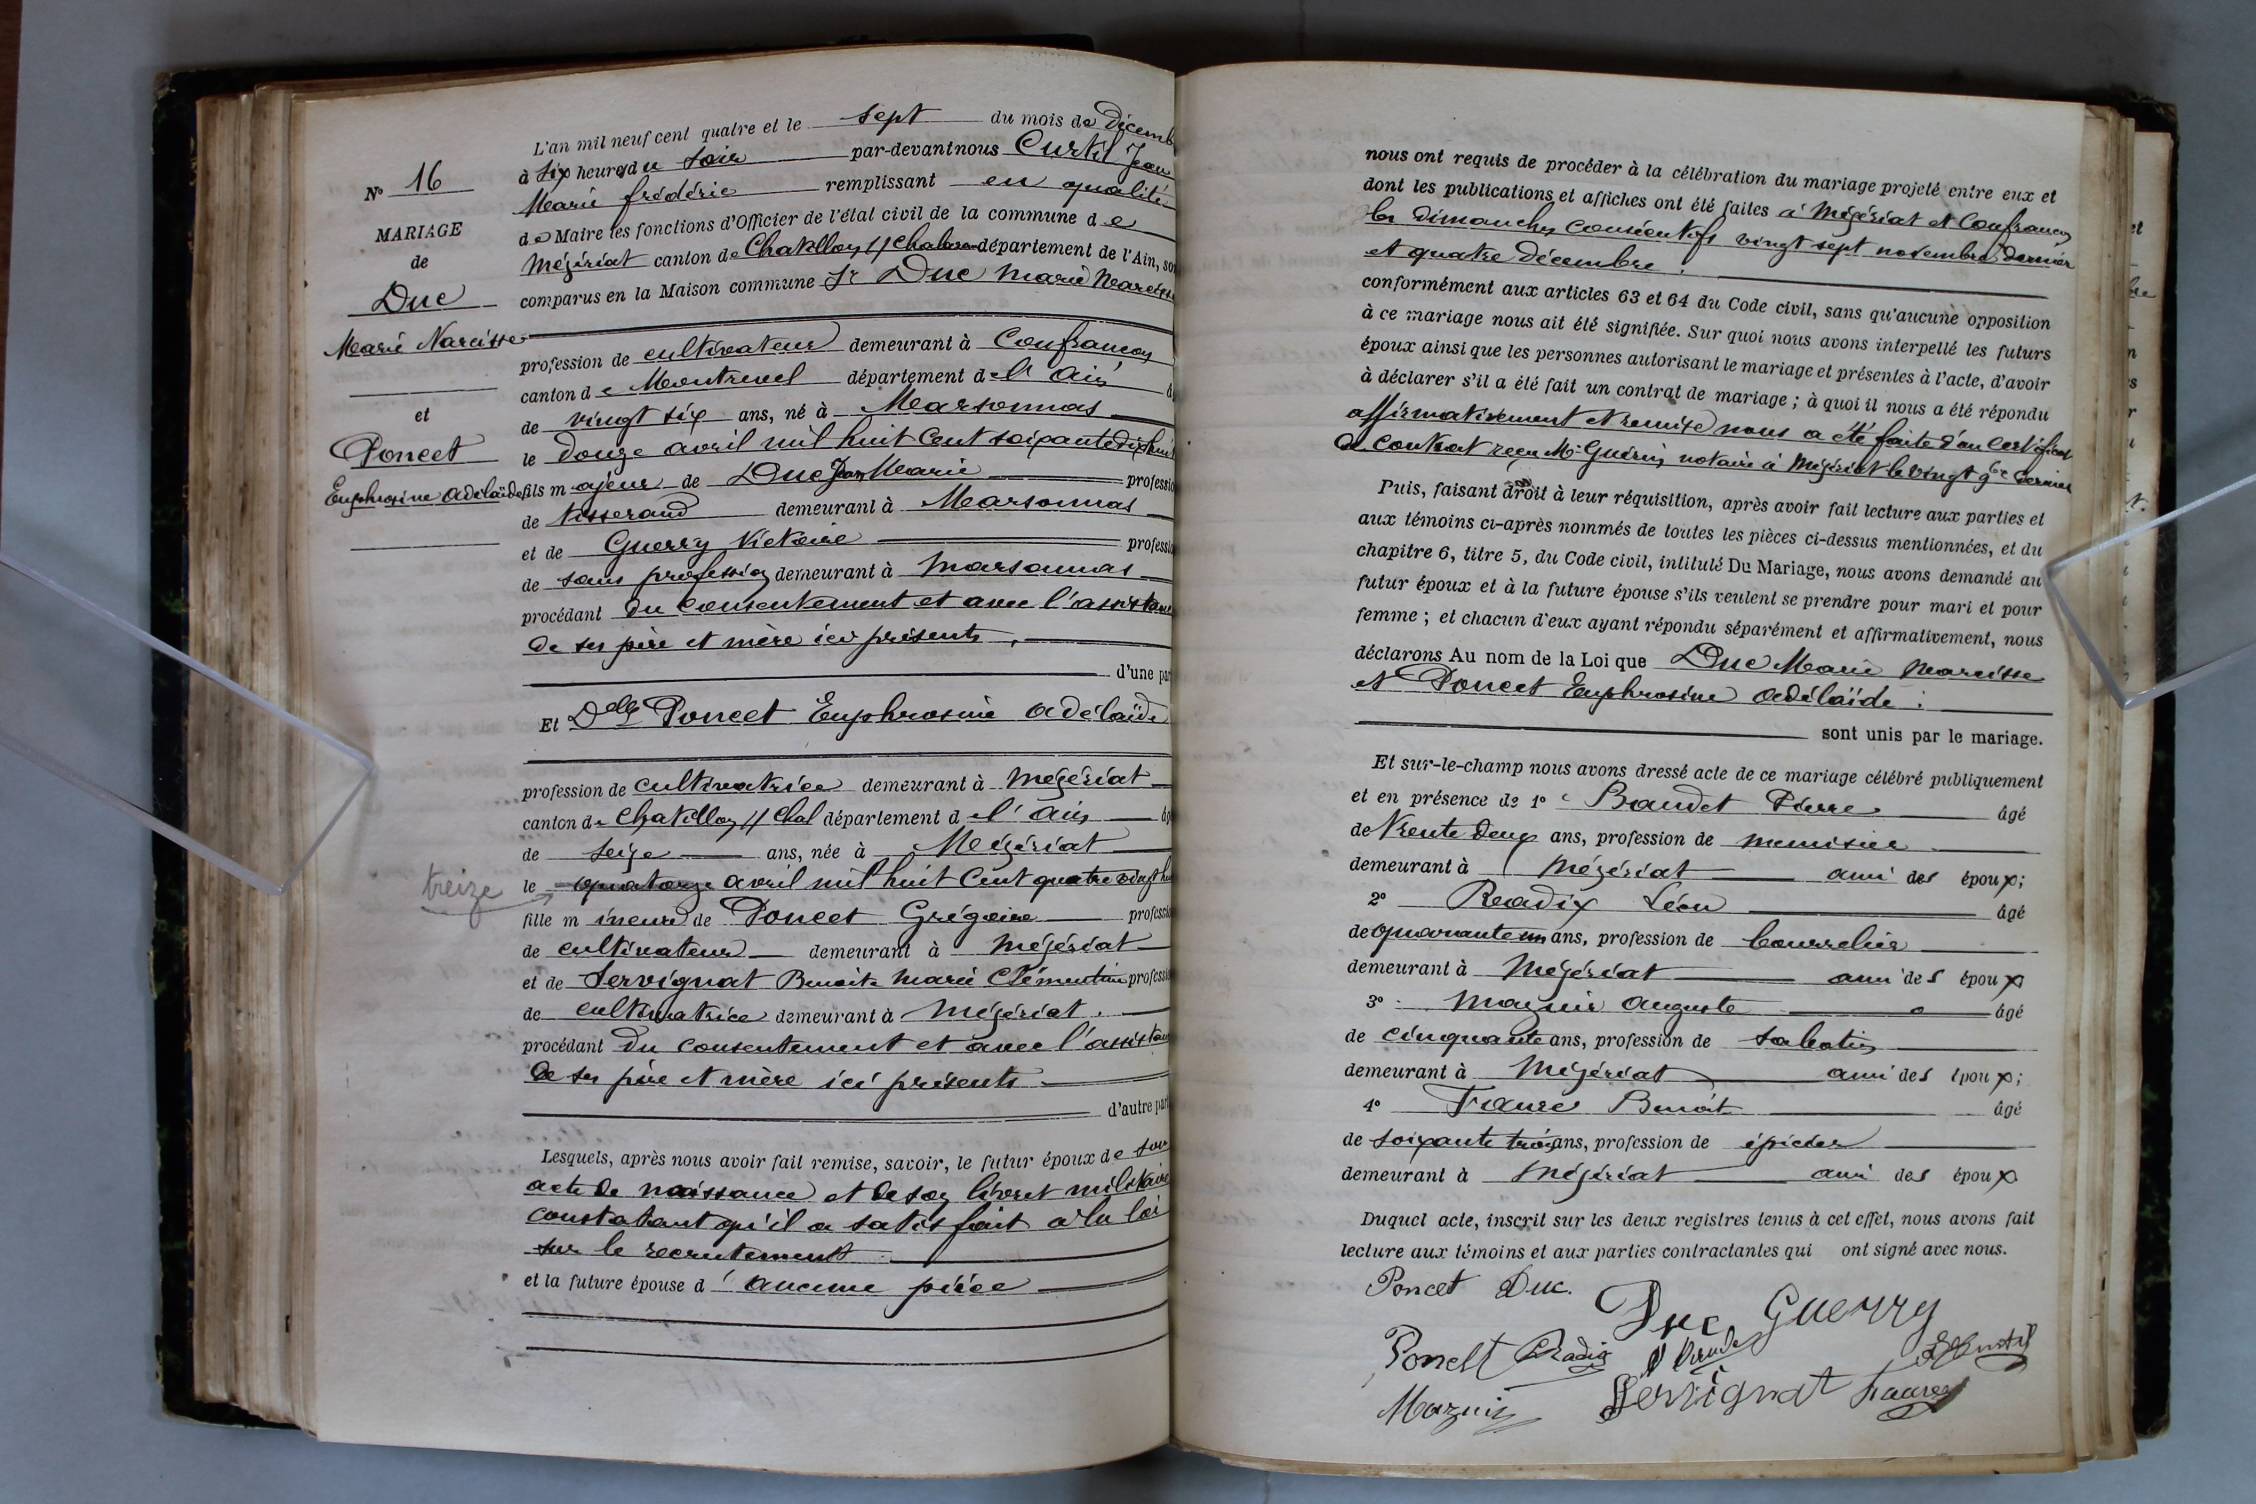 N° 16
MARIAGE
de
Duc
Marie Narcisse
et
Poncet
Euphrosine Adélaïde
treize
L'an mil neuf cent quatre et le sept du mois de Décemb
à six heures du soir par-devant nous Curtil Jean
Marie frédéric remplissant en qualité
de Maire les fonctions d'Officier de l'état civil de la commune de
Mézériat canton de Chatillon s/ Chalaronne département de l'Ain, son
comparus en la Maison commune Sr Duc Marie Narcisse
profession de cultivateur demeurant à Confrançon
canton de Montrevel département de l'Ain
de vingt six ans, né à Marsonnas
le douze avril mil huit cent soixante dix huit
fils majeur de Duc Jean Marie professio
de tisserand demeurant à Marsonnas
et de Guerry Victoire professio
de sans profession demeurant à Marsonnas
procédant du consentement et avec l'assistance
de ses père et mère ici présents.
d'une par
Et Delle Poncet Euphrosine Adélaïde
profession de cultivatrice demeurant à Mézériat
canton de Chatillon s/ Chal département de l'Ain âg
de seize ans, née à Mézériat
le quatorze avril mil huit cent quatre vingt hu
fille mineure de Poncet Grégoire professio
de cultivateur demeurant à Mézériat
et de Servignat Benoite Marie Clémentine professio
de cultivatrice demeurant à Mézériat.
procédant du consentement et avec l'assistan
de ses père et mère ici présents
d'autre part
Lesquels, après nous avoir fait remise, savoir, le futur époux de son
acte de naissance et de son livret militaire
constatant qu'il a satisfait à la loi
sur le recrutement
et la future épouse d'aucune pièce
nous ont requis de procéder à la célébration du mariage projeté entre eux et
dont les publications et affiches ont été faites à Mézériat et Confrançon
les dimanches consécutifs vingt sept novembre dernier
et quatre décembre.
conformément aux articles 63 et 64 du Code civil, sans qu'aucune opposition
à ce mariage nous ait été signifiée. Sur quoi nous avons interpellé les futurs
époux ainsi que les personnes autorisant le mariage et présentes à l'acte, d'avoir
à déclarer s'il a été fait un contrat de mariage ; à quoi il nous a été répondu
affirmativement et remise nous a été faite d'un certificat
de contrat reçu Me Guérin notaire à Mézériat le vingt 9bre dernier
Puis, faisant droit à leur réquisition, après avoir fait lecture aux parties et
aux témoins ci-après nommés de toutes les pièces ci-dessus mentionnées, et du
chapitre 6, titre 5, du Code civil, intitulé Du Mariage, nous avons demandé au
futur époux et à la future épouse s'ils veulent se prendre pour mari et pour
femme ; et chacun d'eux ayant répondu séparément et affirmativement, nous
déclarons Au nom de la Loi que Duc Marie Narcisse
et Poncet Euphrosine Adélaïde :
sont unis par le mariage.
Et sur-le-champ nous avons dressé acte de ce mariage célébré publiquement
et en présence de 1° Baudet Pierre âgé
de trente deux ans, profession de menuisier
demeurant à Mézériat ami des époux;
2° Radix Léon âgé
de quarante un ans, profession de bourrelier
demeurant à Mézériat ami des époux
3° Mazuir Auguste âgé
de cinquante ans, profession de sabotier
demeurant à Mézériat ami des époux;
4° Faure Benoit âgé
de soixante trois ans, profession de épicier
demeurant à Mézériat ami des époux
Duquel acte, inscrit sur les deux registres tenus à cet effet, nous avons fait
lecture aux témoins et aux parties contractantes qui ont signé avec nous.
Poncet Duc.
Duc Guerry
Poncet Radix Curtil
Mazuir Servignat Faure